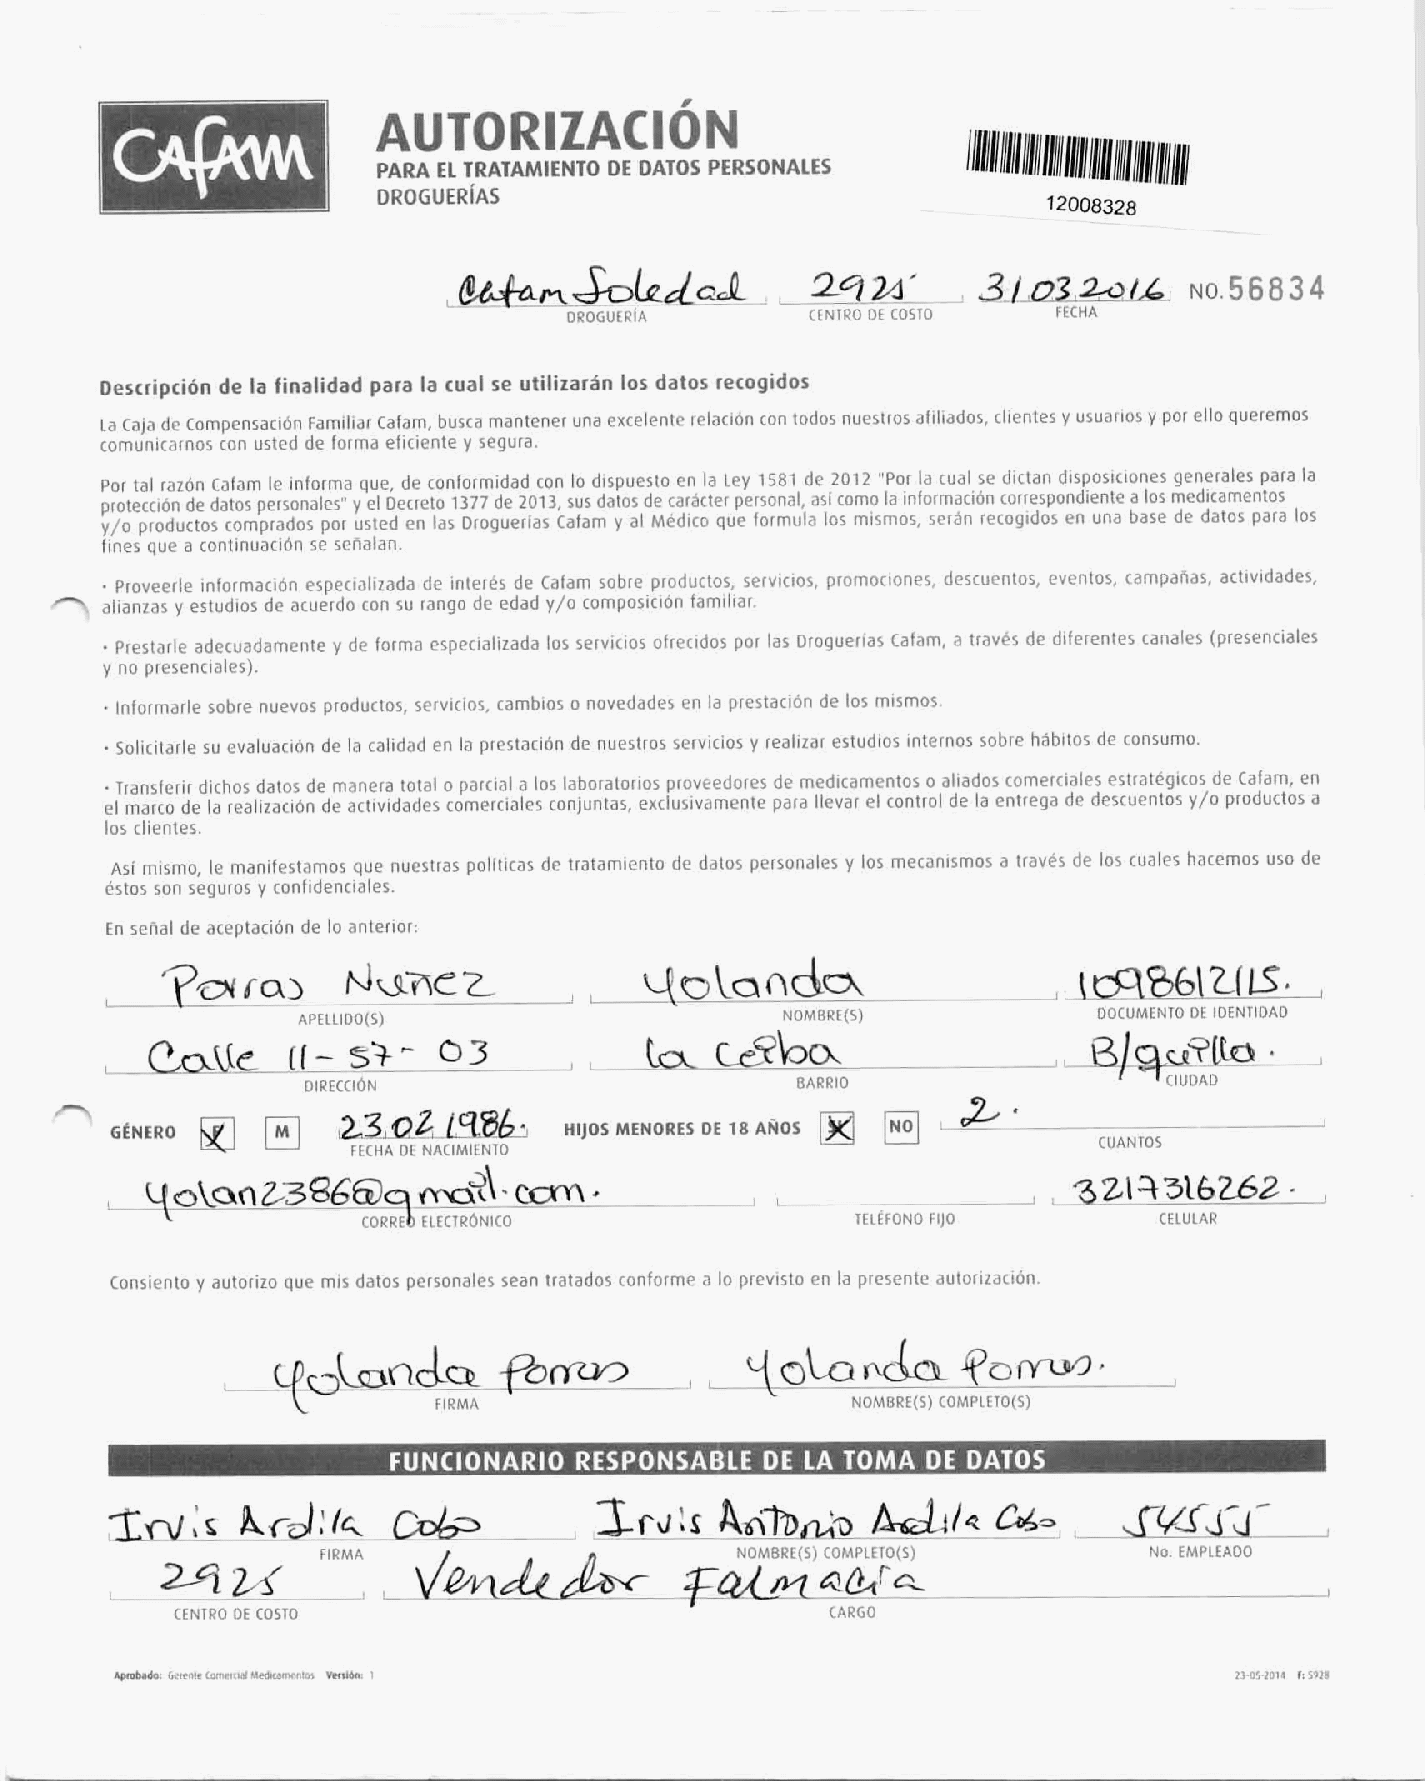 CAFAM
AUTORIZACIÓN
PARA EL TRATAMIENTO DE DATOS PERSONALES
DROGUERÍAS
12008328
Cafam Soledad 2925 31032016 NO.56834
DROGUERÍA CENTRO DE COSTO FECHA
Descripción de la finalidad para la cual se utilizarán los datos recogidos
La Caja de Compensación Familiar Cafam, busca mantener una excelente relación con todos nuestros afiliados, clientes y usuarios y por ello queremos
comunicarnos con usted de forma eficiente y segura.
Por tal razón Cafam le informa que, de conformidad con lo dispuesto en la Ley 1581 de 2012 "Por la cual se dictan disposiciones generales para la
protección de datos personales" y el Decreto 1377 de 2013, sus datos de carácter personal, así como la información correspondiente a los medicamentos
y/o productos comprados por usted en las Droguerías Cafam y al Médico que formula los mismos, serán recogidos en una base de datos para los
fines que a continuación se señalan.
· Proveerle información especializada de interés de Cafam sobre productos, servicios, promociones, descuentos, eventos, campañas, actividades,
alianzas y estudios de acuerdo con su rango de edad y/o composición familiar.
· Prestarle adecuadamente y de forma especializada los servicios ofrecidos por las Droguerías Cafam, a través de diferentes canales (presenciales
y no presenciales).
· Informarle sobre nuevos productos, servicios, cambios o novedades en la prestación de los mismos.
· Solicitarle su evaluación de la calidad en la prestación de nuestros servicios y realizar estudios internos sobre hábitos de consumo.
· Transferir dichos datos de manera total o parcial a los laboratorios proveedores de medicamentos o aliados comerciales estratégicos de Cafam, en
el marco de la realización de actividades comerciales conjuntas, exclusivamente para llevar el control de la entrega de descuentos y/o productos a
los clientes.
Así mismo, le manifestamos que nuestras políticas de tratamiento de datos personales y los mecanismos a través de los cuales hacemos uso de
éstos son seguros y confidenciales.
En señal de aceptación de lo anterior:
Porras Nuñez Yolanda 1098612115.
APELLIDO(S) NOMBRE(S) DOCUMENTO DE IDENTIDAD
Calle 11-57-03 la ceiba B/quilla.
DIRECCIÓN BARRIO CIUDAD
GÉNERO F M 23021986. HIJOS MENORES DE 18 AÑOS NO 2.
FECHA DE NACIMIENTO CUANTOS
yolan2386@gmail.com. 3217316262.
CORREO ELECTRÓNICO TELÉFONO FIJO CELULAR
Consiento y autorizo que mis datos personales sean tratados conforme a lo previsto en la presente autorización.
Yolanda Porras Yolanda Porras.
FIRMA NOMBRE(S) COMPLETO(S)
FUNCIONARIO RESPONSABLE DE LA TOMA DE DATOS
Irvis Ardila Cobo Irvis Antonio Ardila Cobo 54555
FIRMA NOMBRE(S) COMPLETO(S) No. EMPLEADO
2925 Vendedor Falmacia
CENTRO DE COSTO CARGO
Aprobado: Gerente Comercial Medicamentos Versión: 1 23-05-2014 F: 5928